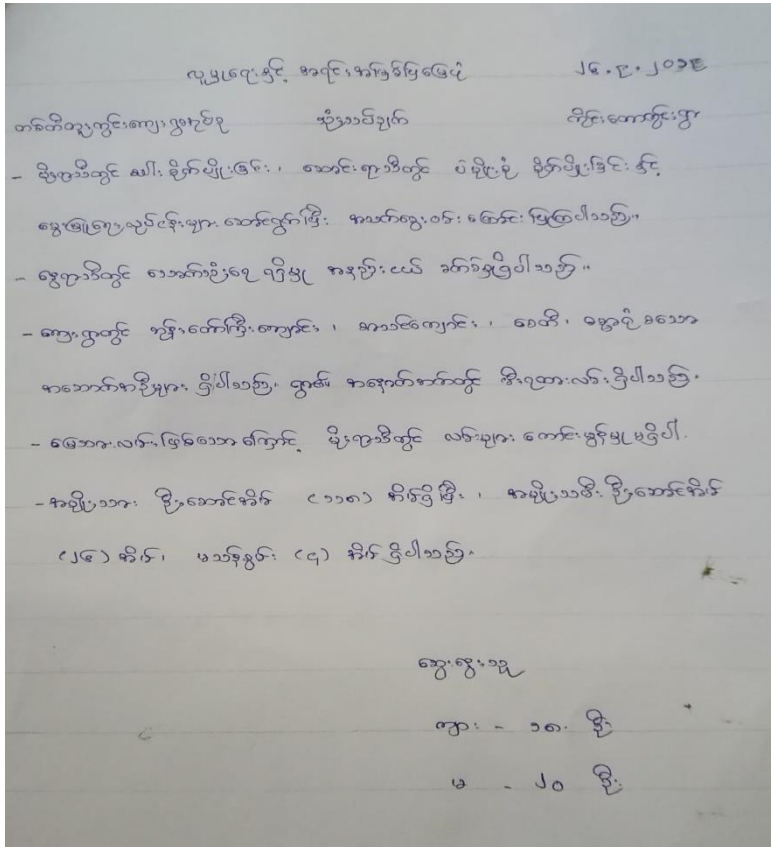 လူမှုရေးနှင့် အရင်းအမြစ်ပြမြေပုံ ၂၄.၉.၂၀၁၄
တစ်တီတူးကွင်းကျေးရွာအုပ်စု သုံးသပ်ချက် ကိုင်းတောကွင်းရွာ
- မိုးရာသီတွင် စပါး စိုက်ပျိုးခြင်း၊ ဆောင်းရာသီတွင် ပဲမျိုးစုံ စိုက်ပျိုးခြင်းနှင့်
မွေးမြူရေးလုပ်ငန်းများ ဆောင်ရွက်ပြီး အသက်မွေးဝမ်းကြောင်းပြုကြပါသည်။
- နွေရာသီတွင် သောက်သုံးရေ ရရှိမှု အနည်းငယ် ခက်ခဲမှုရှိပါသည်။
- ကျေးရွာတွင် ဘုန်းတော်ကြီးကျောင်း၊ စာသင်ကျောင်း၊ စေတီ၊ ဓမ္မာရုံ စသော
အဆောက်အဦများ ရှိပါသည်။ ရွာ၏ အနောက်ဘက်တွင် မီးရထားလမ်းရှိပါသည်။
- မြေသားလမ်းဖြစ်သောကြောင့် မိုးရာသီတွင် လမ်းများ ကောင်းမွန်မှု မရှိပါ။
- အမျိုးသား ဦးဆောင်အိမ် (၁၁၈) အိမ်ရှိပြီး၊ အမျိုးသမီး ဦးဆောင်အိမ်
(၂၄) အိမ်၊ မသန်စွမ်း (၄) အိမ် ရှိပါသည်။
ဆွေးနွေးသူ
ကျား - ၁၈ ဦး
မ - ၂၀ ဦး